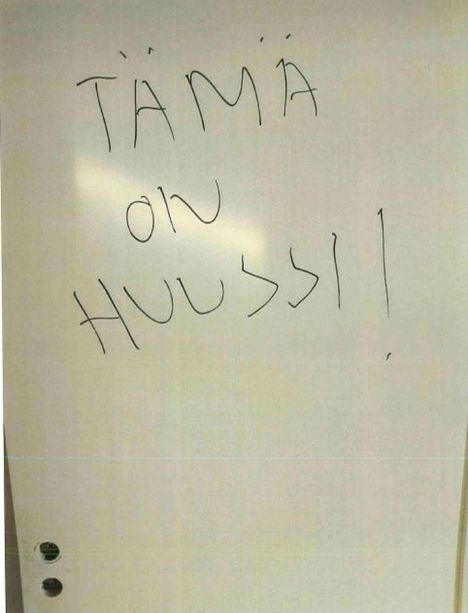 TÄMÄ
ON
HUUSSI!